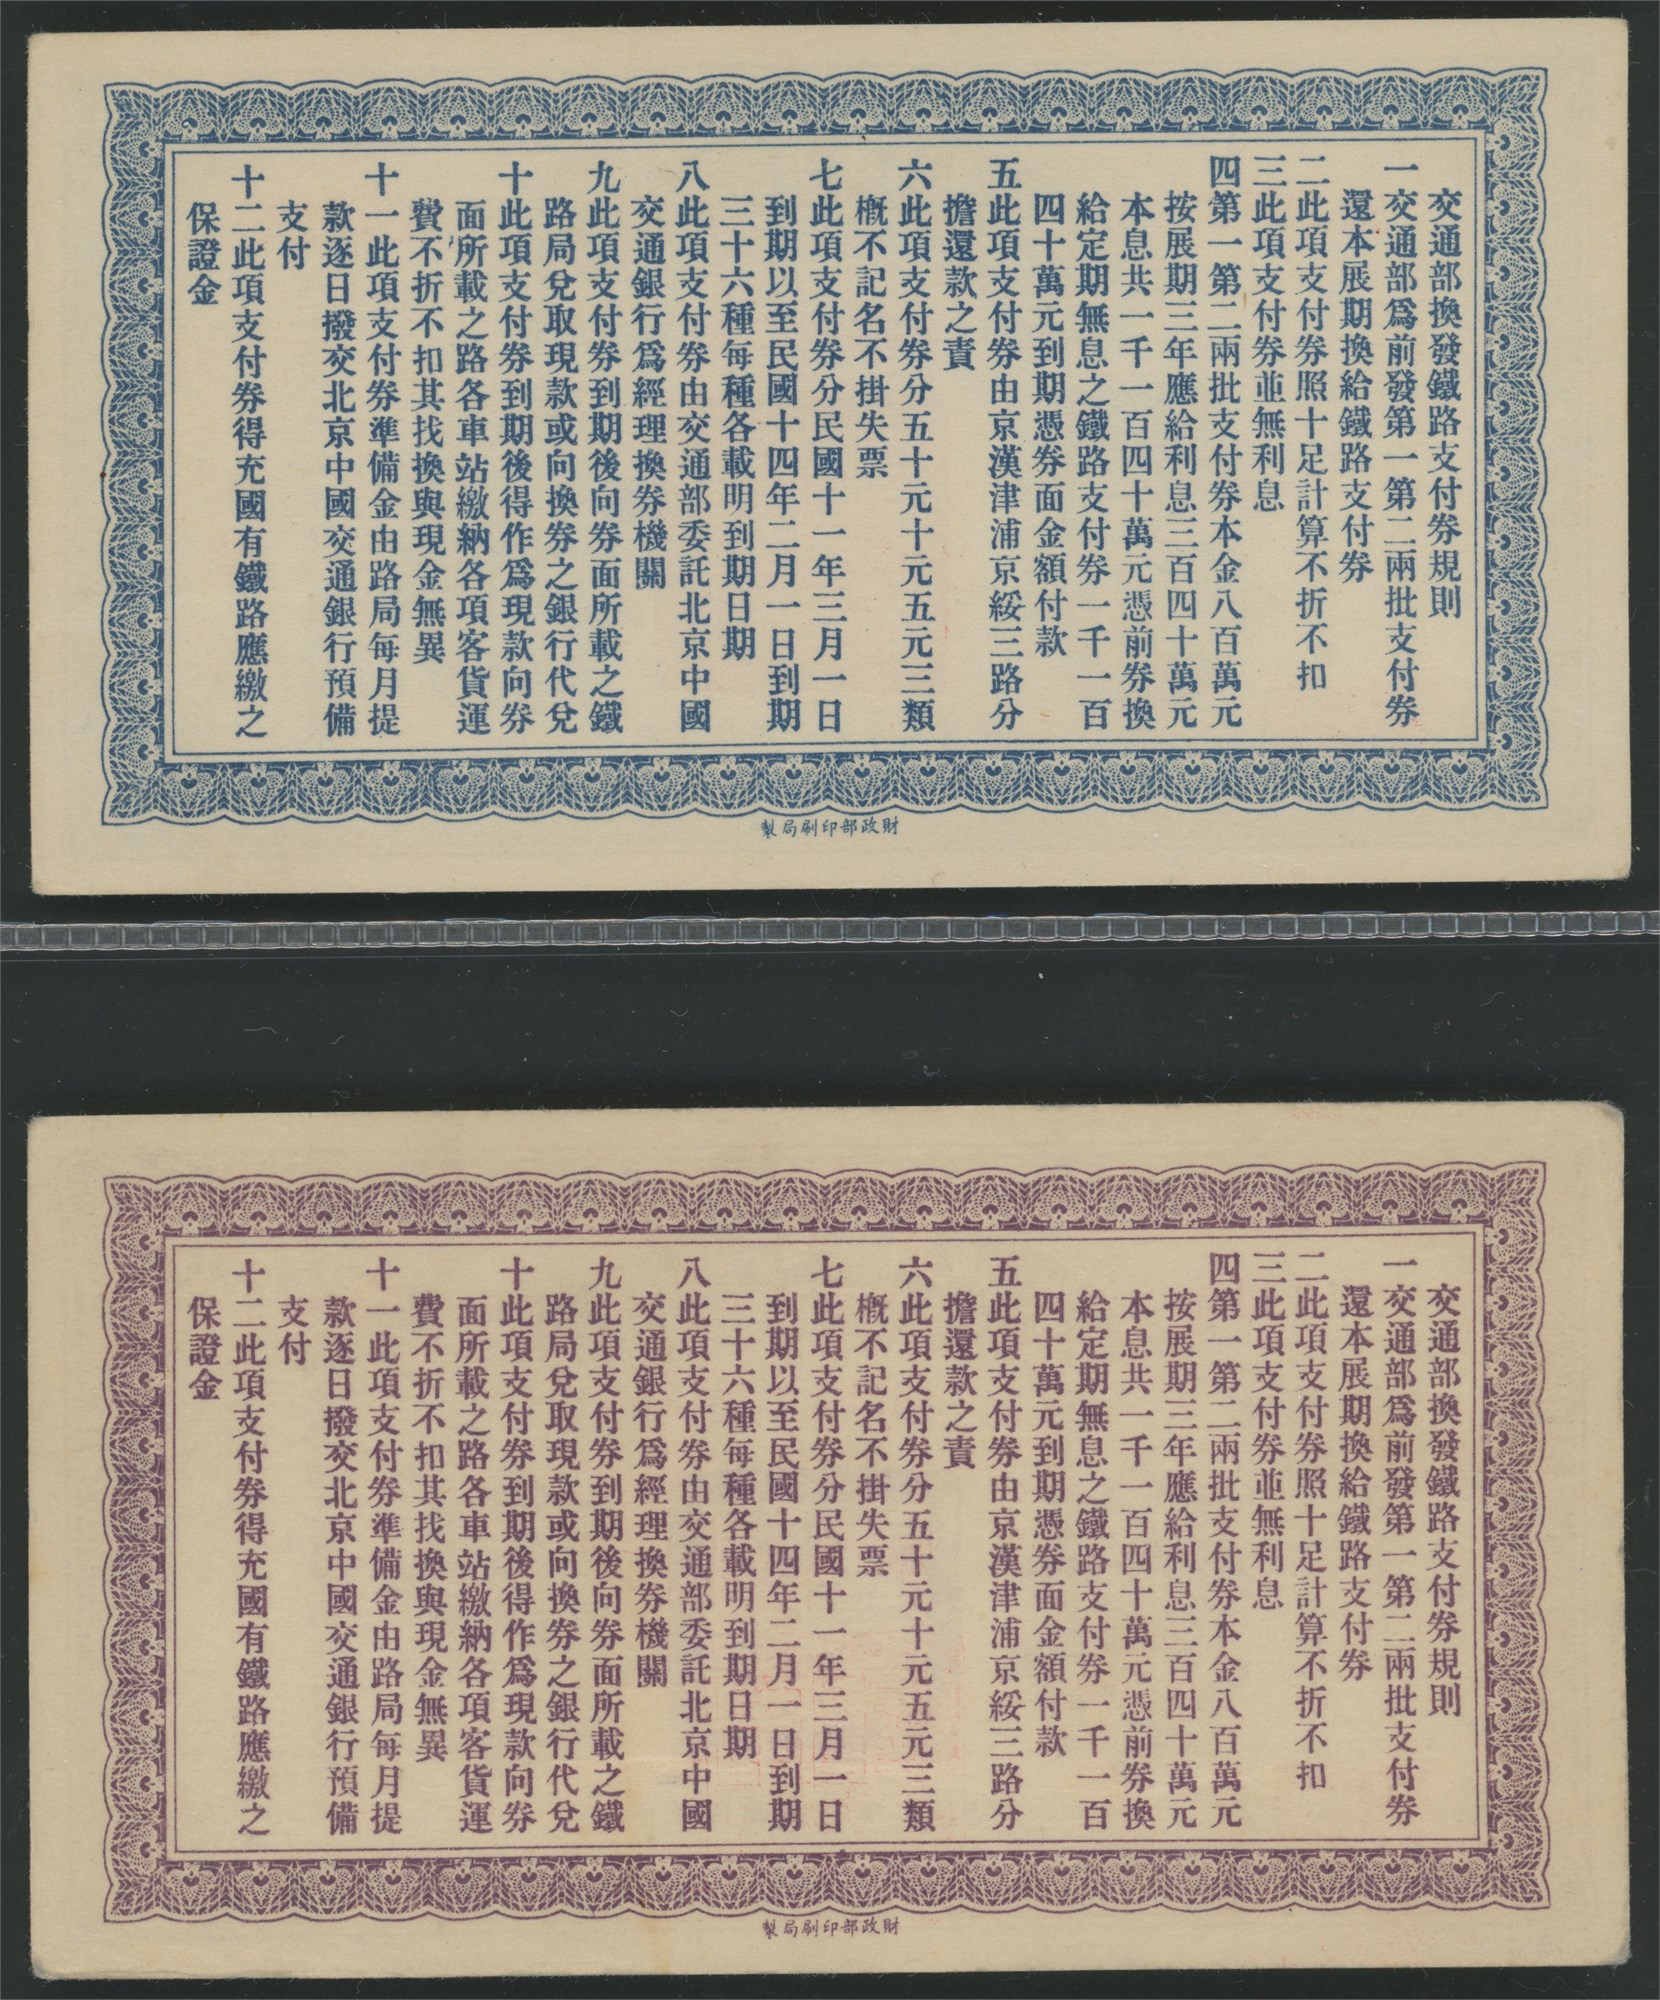 交通部換發鐵路支付券規則
一交通部爲前發第一第二兩批支付券
還本展期換給鐵路支付券
二此項支付券照十足計算不折不扣
三此項支付券並無利息
四第一第二兩批支付券本金八百萬元
按展期三年應給利息三百四十萬元
本息共一千一百四十萬元憑前券換
給定期無息之鐵路支付券一千一百
四十萬元到期憑券面金額付款
五此項支付券由京漢津浦京綏三路分
擔還款之責
六此項支付券分五十元十元五元三類
概不記名不掛失票
七此項支付券分民國十一年三月一日
到期以至民國十四年二月一日到期
三十六種每種各載明到期日期
八此項支付券由交通部委託北京中國
交通銀行爲經理換券機關
九此項支付券到期後向券面所載之鐵
路局兌取現款或向換券之銀行代兌
十此項支付券到期後得作爲現款向券
面所載之路各車站繳納各項客貨運
費不折不扣其找換與現金無異
十一此項支付券準備金由路局每月提
款逐日撥交北京中國交通銀行預備
支付
十二此項支付券得充國有鐵路應繳之
保證金
財政部印刷局製
交通部換發鐵路支付券規則
一交通部爲前發第一第二兩批支付券
還本展期換給鐵路支付券
二此項支付券照十足計算不折不扣
三此項支付券並無利息
四第一第二兩批支付券本金八百萬元
按展期三年應給利息三百四十萬元
本息共一千一百四十萬元憑前券換
給定期無息之鐵路支付券一千一百
四十萬元到期憑券面金額付款
五此項支付券由京漢津浦京綏三路分
擔還款之責
六此項支付券分五十元十元五元三類
概不記名不掛失票
七此項支付券分民國十一年三月一日
到期以至民國十四年二月一日到期
三十六種每種各載明到期日期
八此項支付券由交通部委託北京中國
交通銀行爲經理換券機關
九此項支付券到期後向券面所載之鐵
路局兌取現款或向換券之銀行代兌
十此項支付券到期後得作爲現款向券
面所載之路各車站繳納各項客貨運
費不折不扣其找換與現金無異
十一此項支付券準備金由路局每月提
款逐日撥交北京中國交通銀行預備
支付
十二此項支付券得充國有鐵路應繳之
保證金
財政部印刷局製